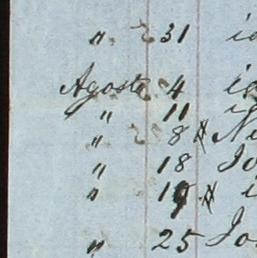 " 31 id
Agosto 4 id
" 11 id
" 8 # Ni
" 18 Jo
" 19 # i
" 25 Jo